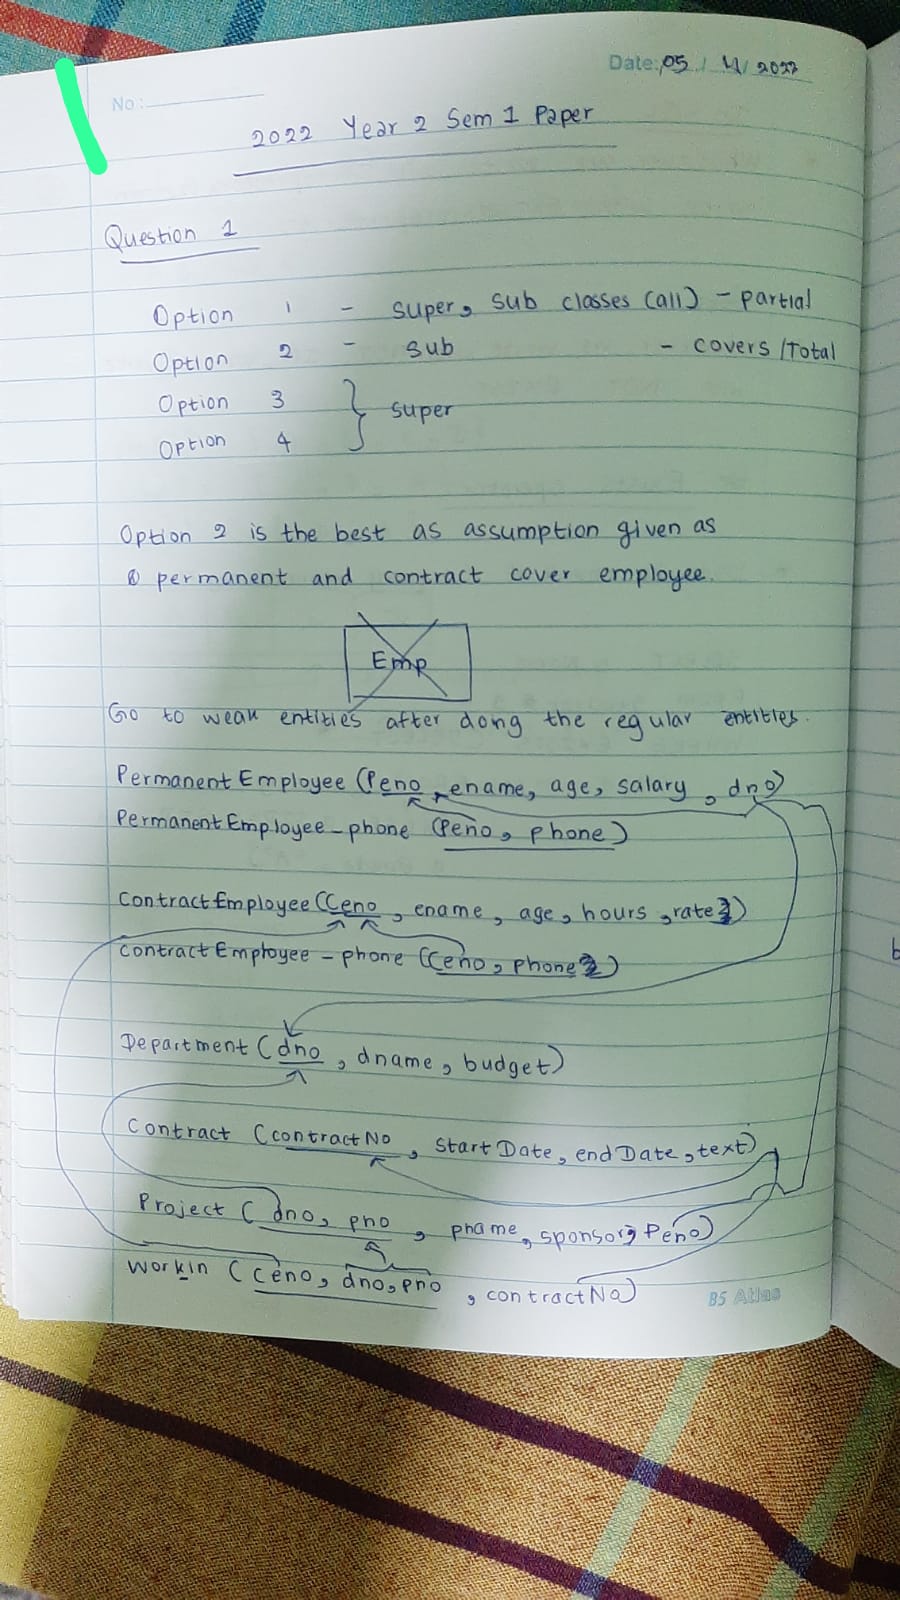 Date: 05 / 11 / 2022
No:
2022 Year 2 Sem 1 Paper
Question 1
Option 1 - super, sub classes (all) - partial
Option 2 - sub - covers /Total
Option 3 } super
Option 4
Option 2 is the best as assumption given as
permanent and contract cover employee.
Emp
Go to weak entities after dong the regular entities.
Permanent Employee (Peno, ename, age, salary, dno)
Permanent Employee - phone (Peno, phone)
Contract Employee (Ceno, ename, age, hours, rate)
Contract Employee - phone (Ceno, phone)
Department (dno, dname, budget)
Contract (contractNo, Start Date, end Date, text)
Project (dno, pno, pname, sponsor, Peno)
Work in (Ceno, dno, pno, contractNo)
B5 Atlas